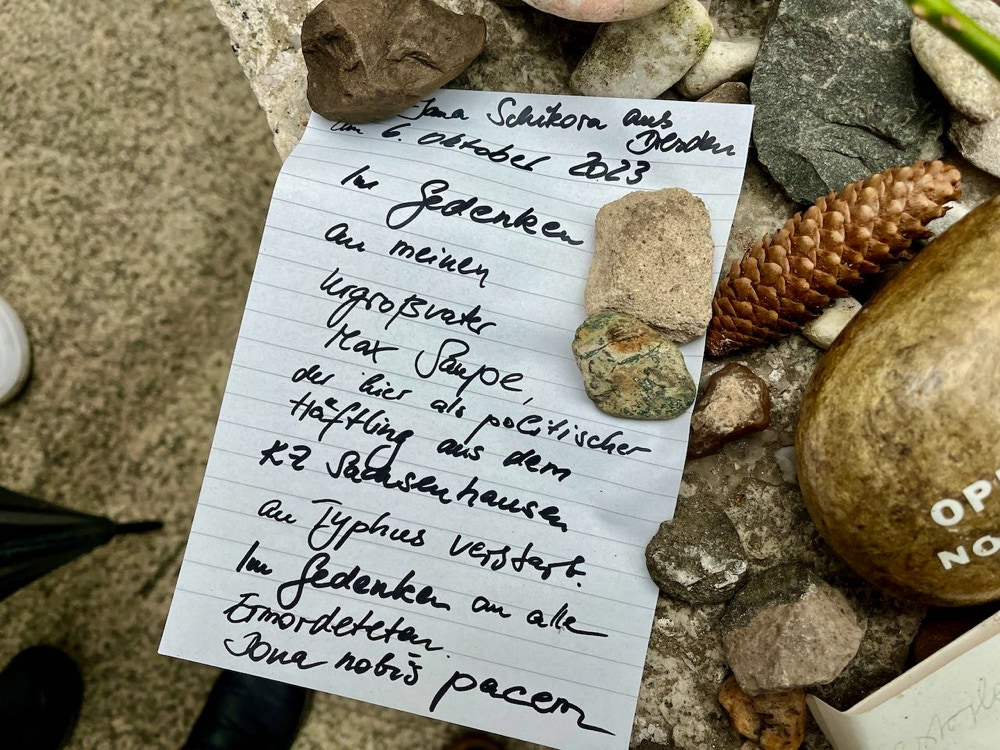 Jana Schikora aus
Dresden
am 6. Oktober 2023
Im Gedenken
an meinen
Urgroßvater
Max Saupe,
der hier als politischer
Häftling aus dem
KZ Sachsenhausen
an Typhus verstarb.
Im Gedenken an alle
Ermordeteten.
Dona nobis pacem
OP
NO